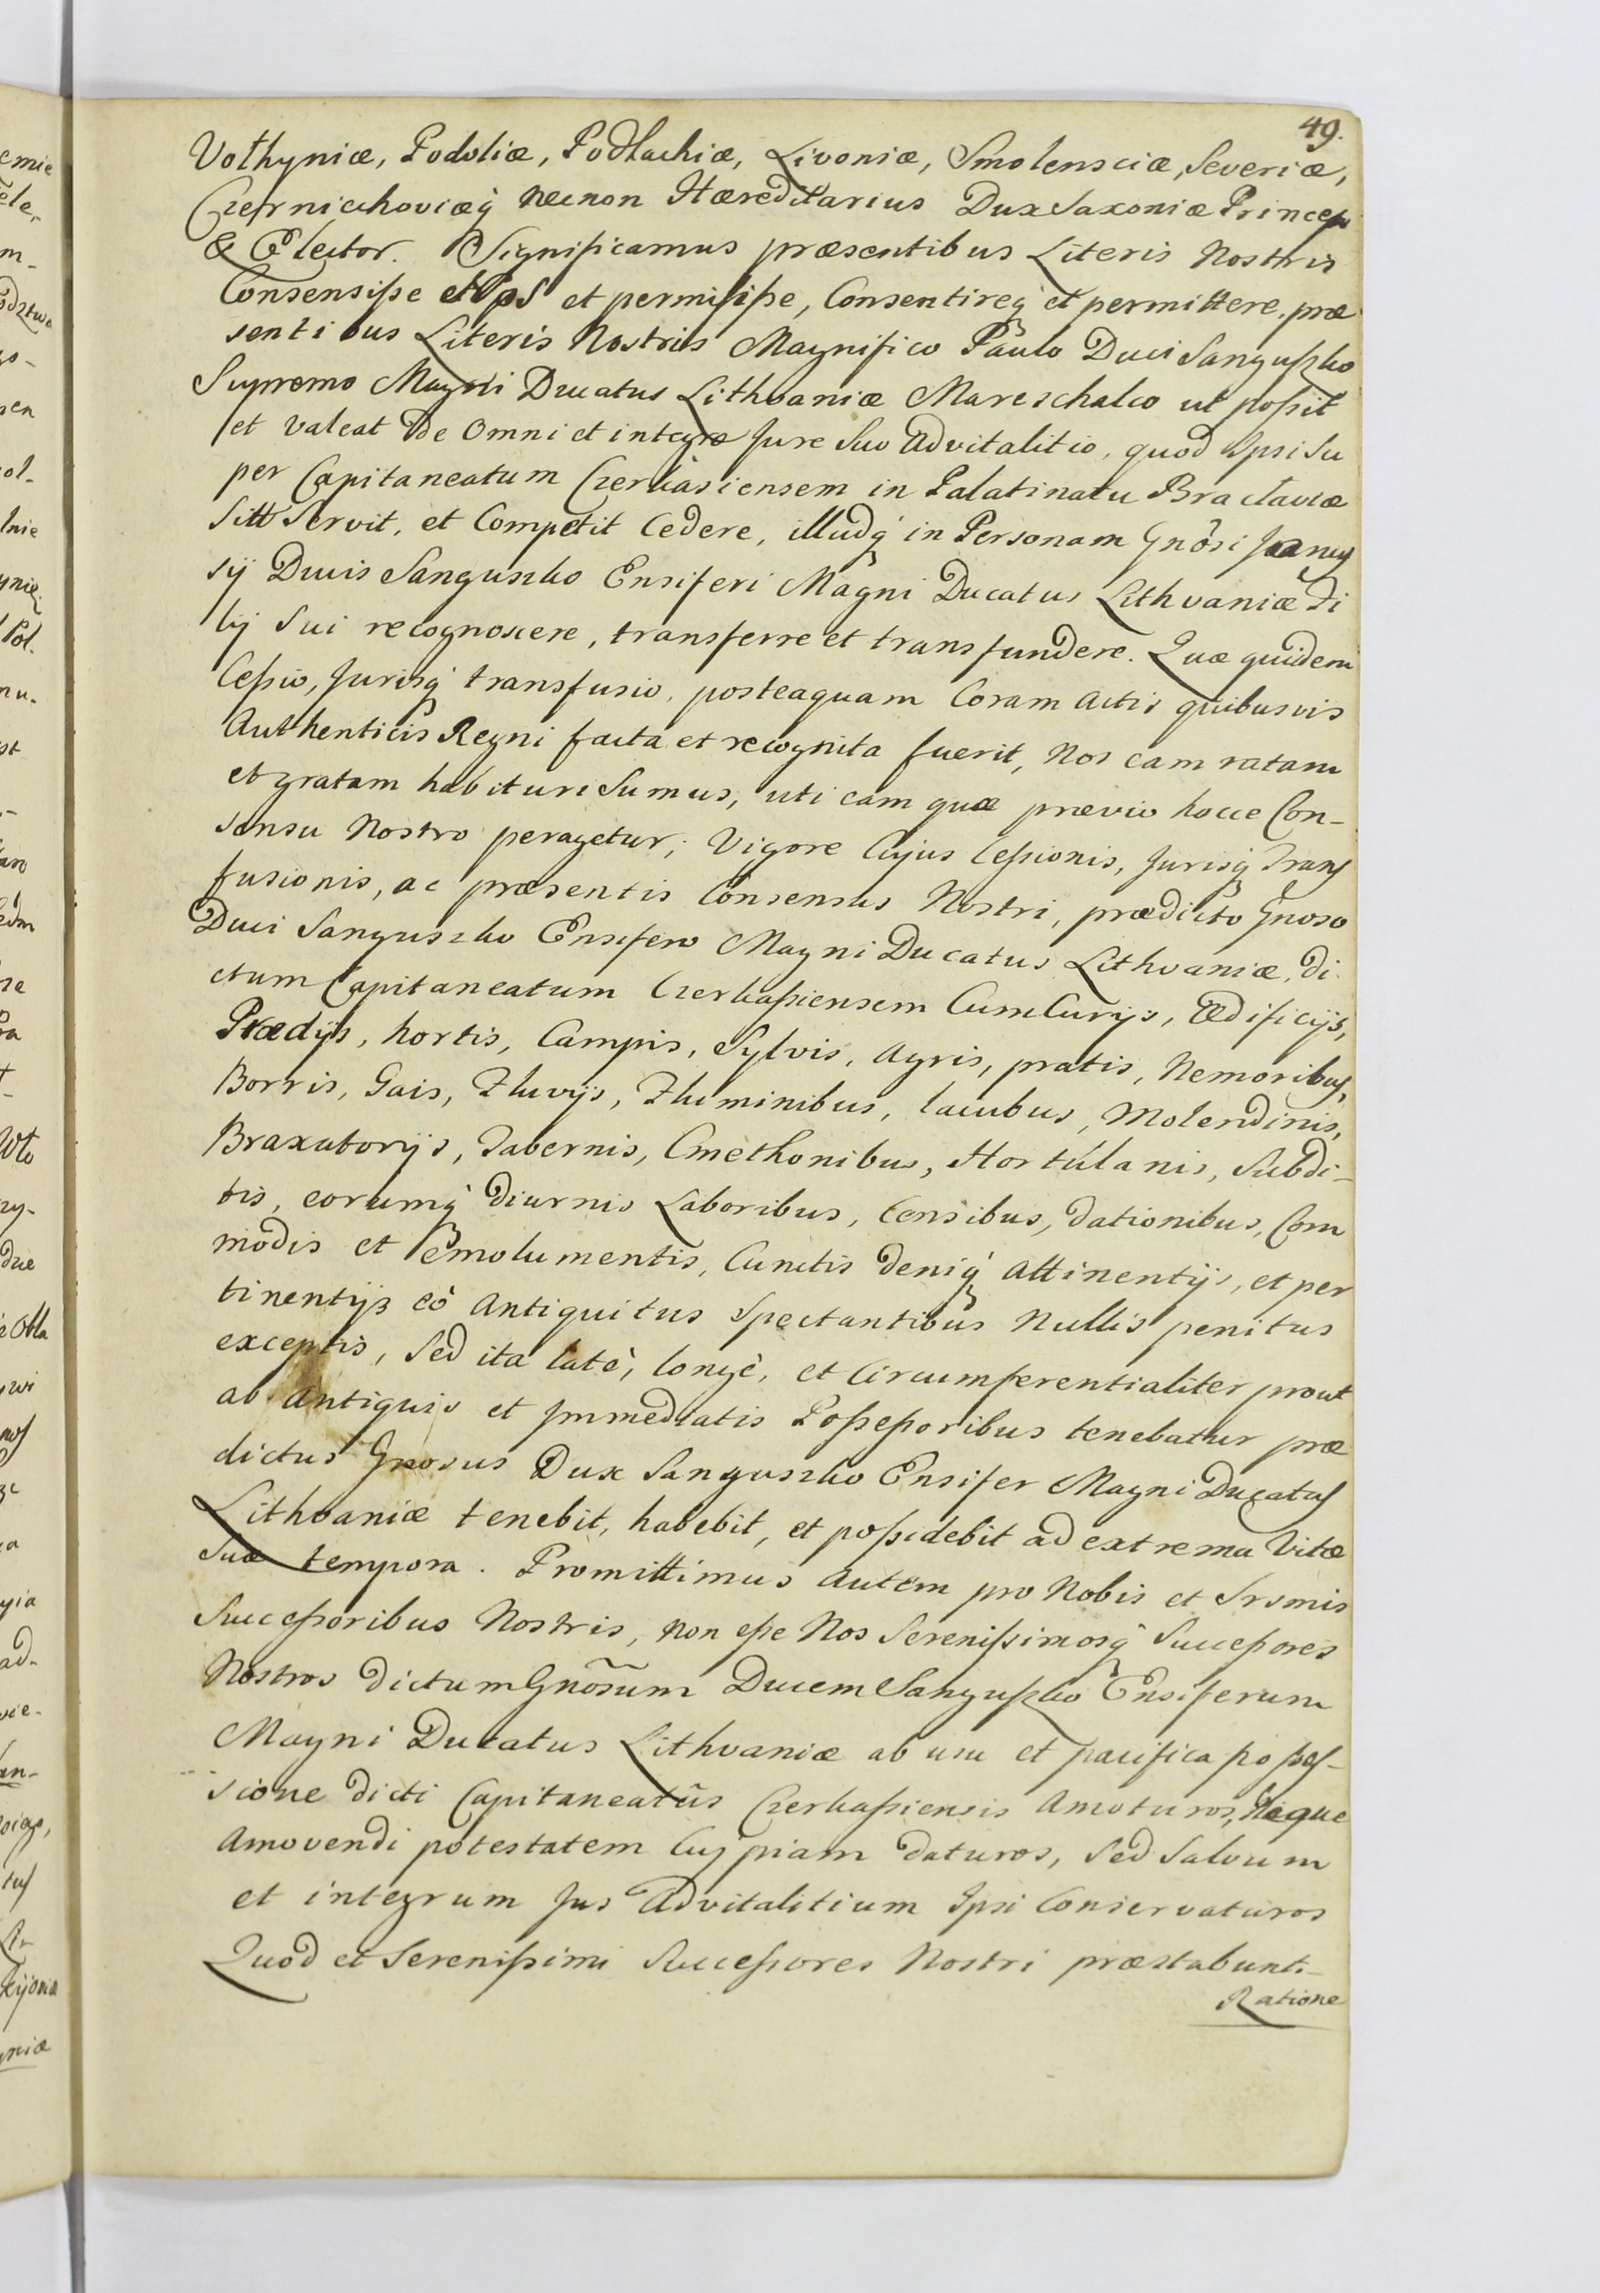 49.
Volhyniæ, Podoliæ, Podlachiæ, Livoniæ, Smolensciæ, Severiæ,
Czernichoviæq́ necnon Hæreditarius Dux Saxoniæ Princeps
& Elector. Significamus præsentibus Literis Nostris
Consensisse et permisisse, Consentireq́ et permittere præ
sentibus Literis Nostris Magnifico Paulo Duci Sanguszko
Supremo Magni Ducatus Lithvaniæ Mareschalco ut possit
et valeat de Omni et integro Jure Suo Advitalitio, quod Ipsi Su
per Capitaneatum Czerkasiensem in Palatinatu Braclaviæ
Servit, et Competit Cedere, illudq́ in Personam Gnôsi Janus
sij Ducis Sanguszko Ensiferi Magni Ducatus Lithvaniæ Fi
lij Sui recognoscere, transferre et transfundere. Quæ quidem
Cessio, Jurisq́ transfusio, posteaquam Coram Actis quibusvis
Authenticis Regni facta et recognita fuerit, Nos eam ratam
et gratam habituri Sumus, uti eam quæ prævio hocce Con-
sensu Nostro peragetur; Vigore Cujus Cessionis, Jurisq́ Trans
fusionis, ac præsentis Consensus Nostri, prædicto Gnoso
Duci Sanguszko Ensifero Magni Ducatus Lithvaniæ, di
ctum Capitaneatum Czerkassiensem Cum Curijs, Ædificijs,
Prædijs, hortis, Campis, Sylvis, Agris, pratis, Nemoribus,
Borris, Gais, Fluvijs, Fluminibus, lacubus, Molendinis,
Braxatorijs, Tabernis, Cmethonibus, Hortulanis, Subdi-
tis, eorumq́ diurnis Laboribus, Censibus, dationibus, Com
modis et Emolumentis, Cunctis deniq́ Attinentijs, et per
tinentijs eò Antiquitus Spectantibus Nullis penitus
exceptis, Sed ita latè, longè, et Circumferentialiter prout
ab Antiquis et Immediatis Possessoribus tenebatur præ
dictus Gnosus Dux Sanguszko Ensifer Magni Ducatus
Lithvaniæ tenebit, habebit, et possidebit ad extrema Vitæ
Suæ tempora. Promittimus Autem pro Nobis et Srsmis
Successoribus Nostris, Non esse Nos Serenissimosq́ Successores
Nostros dictum Gnõsum Ducem Sanguszko Ensiferum
Magni Ducatus Lithvaniæ ab usu et pacifica posses-
sione dicti Capitaneatûs Czerkassiensis Amoturos, Neque
Amovendi potestatem Cujpiam daturos, Sed Salvum
et integrum Jus Advitalitium Ipsi Conservaturos
Quod et Serenissimi Successores Nostri præstabunt.
Ratione